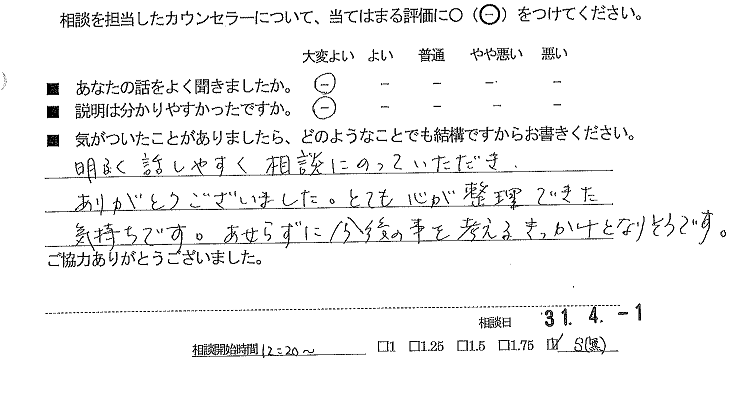 相談を担当したカウンセラーについて、当てはまる評価に○（⊖）をつけてください。
大変よい よい 普通 やや悪い 悪い
■ あなたの話をよく聞きましたか。 － － － － －
■ 説明は分かりやすかったですか。 － － － － －
■ 気がついたことがありましたら、どのようなことでも結構ですからお書きください。
明るく話しやすく相談にのっていただき、
ありがとうございました。とても心が整理できた
気持ちです。あせらずに今後の事を考えるきっかけとなりそうです。
ご協力ありがとうございました。
相談日 31. 4. -1
相談開始時間 12:20～ □1 □1.25 □1.5 □1.75